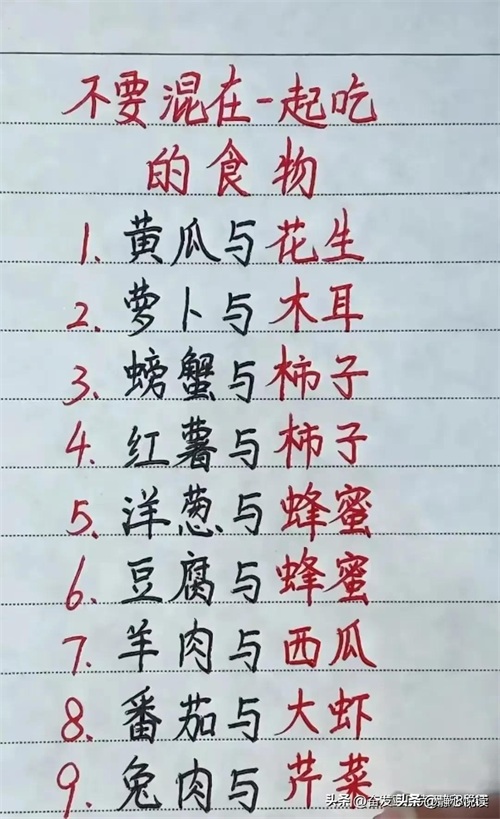 不要混在一起吃
的食物
1.黄瓜与花生
2.萝卜与木耳
3.螃蟹与柿子
4.红薯与柿子
5.洋葱与蜂蜜
6.豆腐与蜂蜜
7.羊肉与西瓜
8.番茄与大虾
9.兔肉与芹菜
头条@奋发 头条@